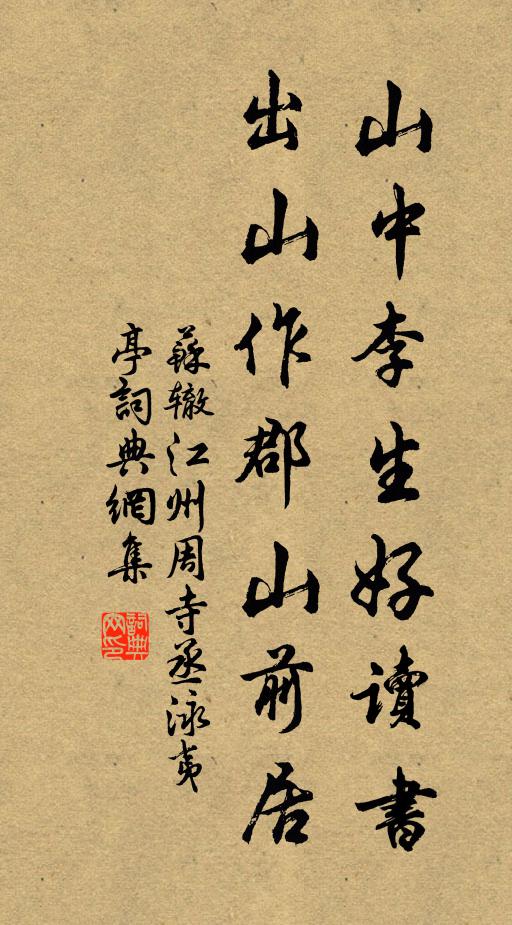 山中李生好讀書
出山作郡山前居
蘇轍江州周寺丞泳夷
亭詞典網集
詞典網印